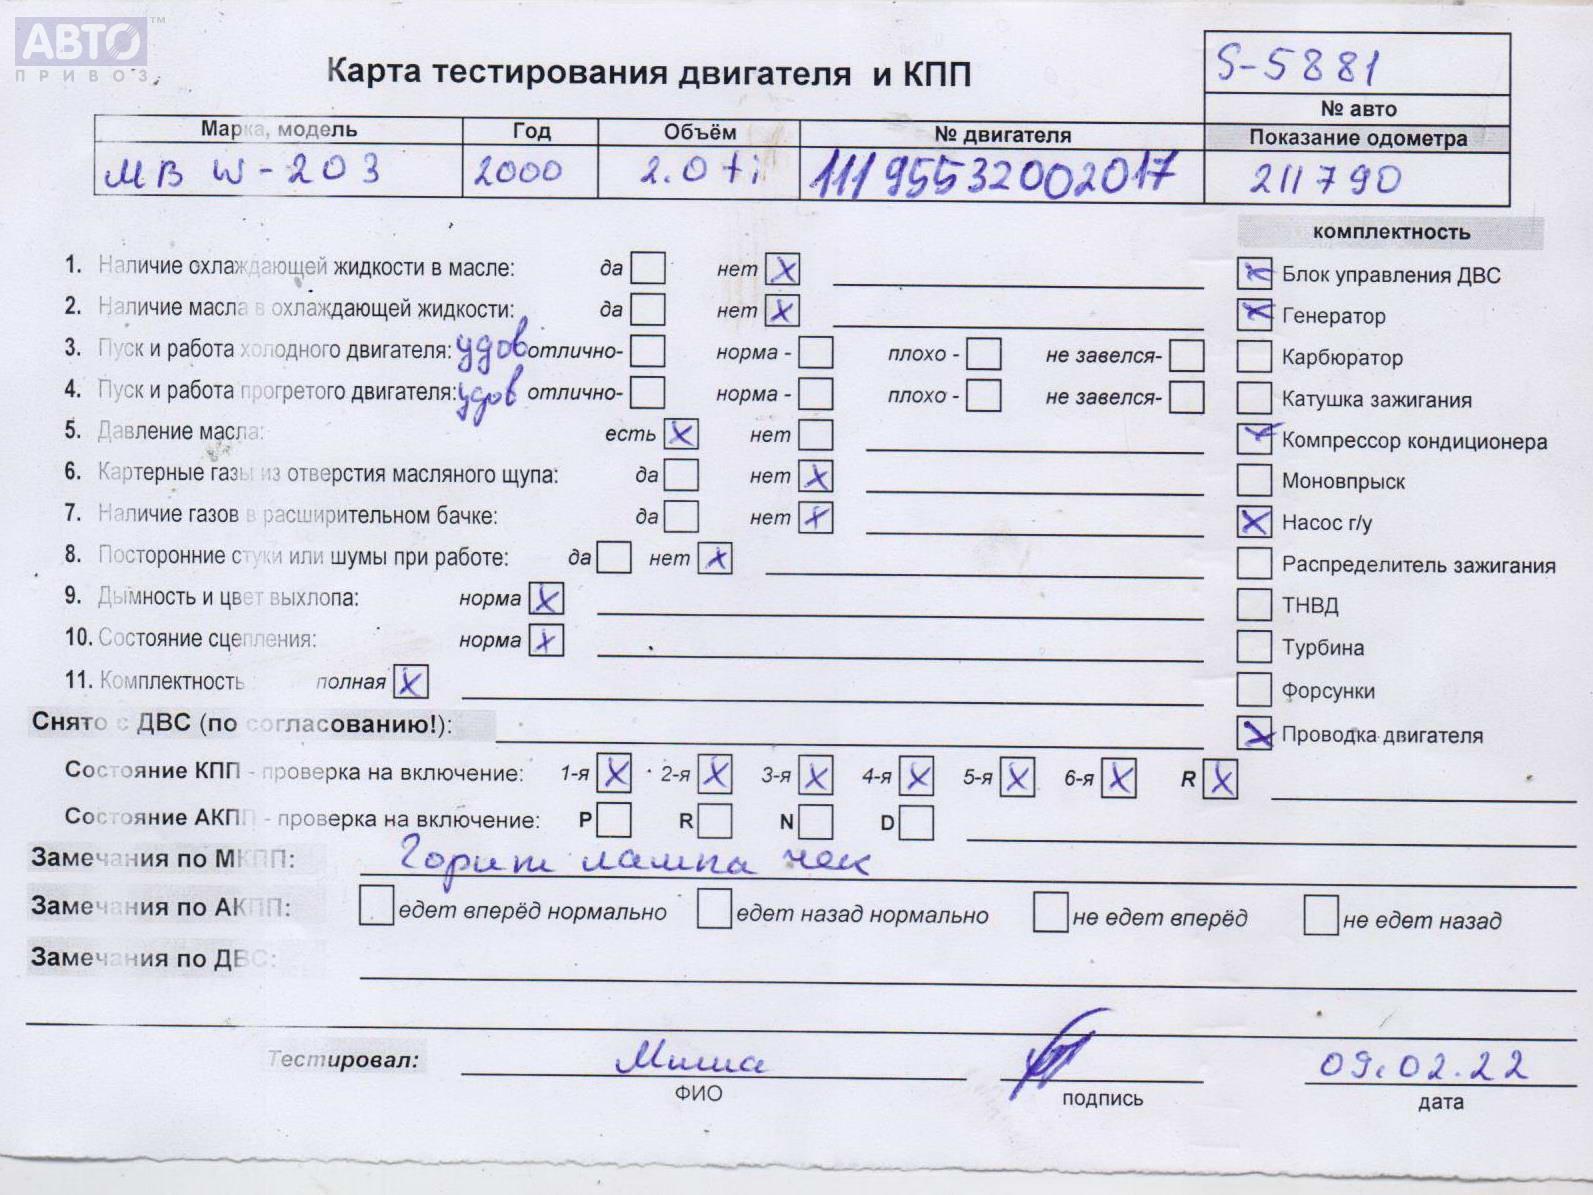 АВТО ™
ПРИВОЗ
Карта тестирования двигателя и КПП
S-5881
№ авто
Марка, модель Год Объём № двигателя Показание одометра
MB W-203 2000 2.0 ti 11195532002017 211790
комплектность
1. Наличие охлаждающей жидкости в масле: да нет X Блок управления ДВС
2. Наличие масла в охлаждающей жидкости: да нет X Генератор
3. Пуск и работа холодного двигателя: удов отлично- норма - плохо - не завелся- Карбюратор
4. Пуск и работа прогретого двигателя: удов отлично- норма - плохо - не завелся- Катушка зажигания
5. Давление масла: есть X нет Компрессор кондиционера
6. Картерные газы из отверстия масляного щупа: да нет X Моновпрыск
7. Наличие газов в расширительном бачке: да нет X X Насос г/у
8. Посторонние стуки или шумы при работе: да нет X Распределитель зажигания
9. Дымность и цвет выхлопа: норма X ТНВД
10. Состояние сцепления: норма X Турбина
11. Комплектность : полная X Форсунки
Снято с ДВС (по согласованию!): X Проводка двигателя
Состояние КПП - проверка на включение: 1-я X 2-я X 3-я X 4-я X 5-я X 6-я X R X
Состояние АКПП - проверка на включение: P R N D
Замечания по МКПП: Горит лампа чек
Замечания по АКПП: едет вперёд нормально едет назад нормально не едет вперёд не едет назад
Замечания по ДВС:
Тестировал: Миша 09.02.22
ФИО подпись дата